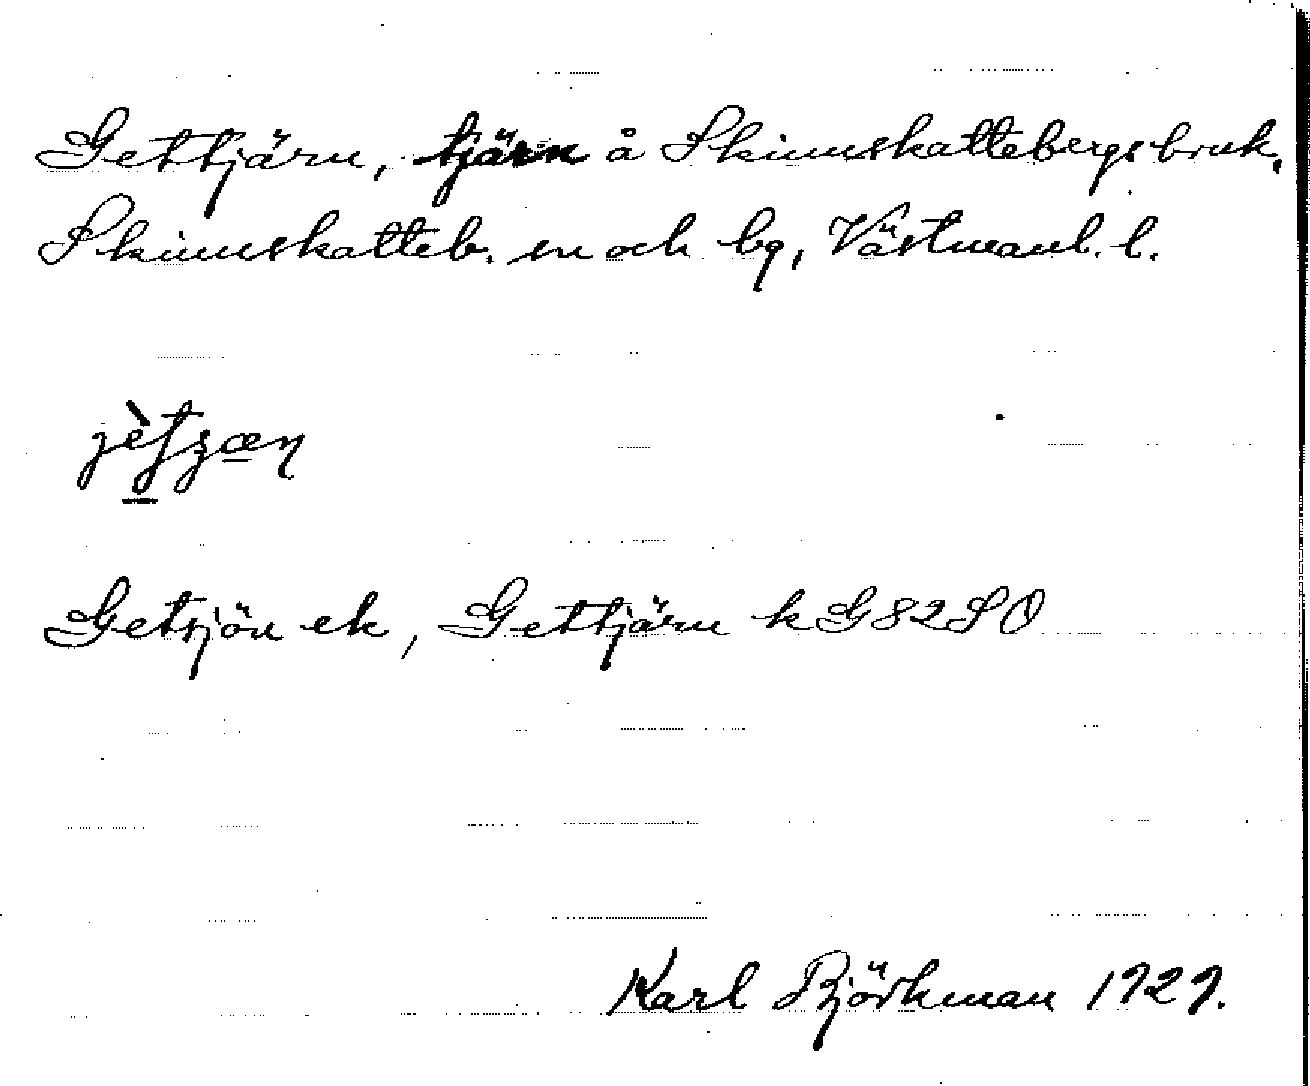 Gettjärn, tjärn å Skinnskattebergs bruk,
Skinnskatteb. sn och bg, Västmanl. l.
Getsjön ek, Gettjärn k G82SO
Karl Björkman 1929.